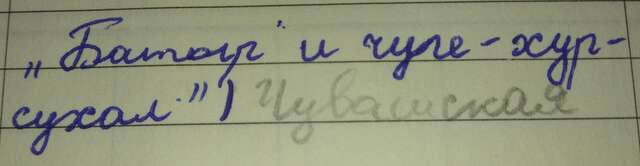 „Батыр" и чуге-хур-
сухал.") Чувашская